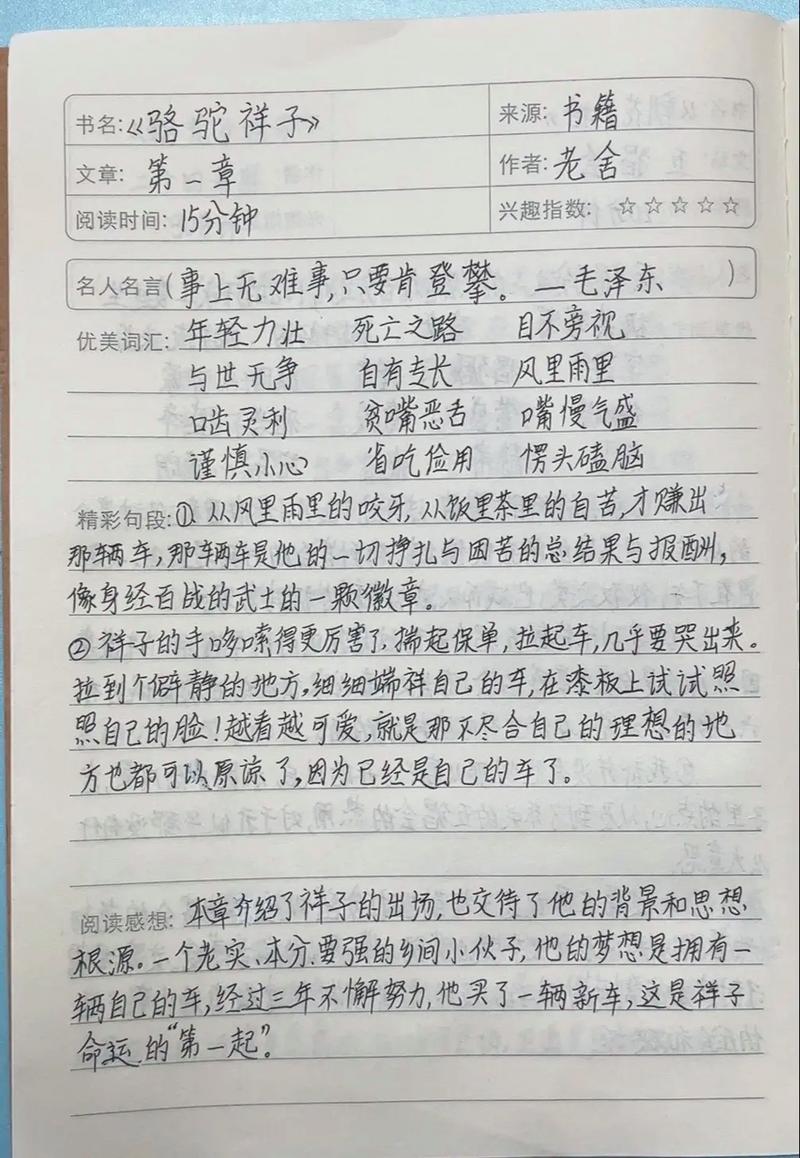 书名:《骆驼祥子》 来源: 书籍
文章: 第一章 作者: 老舍
阅读时间: 15分钟 兴趣指数: ☆☆☆☆☆
名人名言(事上无难事,只要肯登攀。—毛泽东)
优美词汇: 年轻力壮 死亡之路 目不旁视
与世无争 自有专长 风里雨里
口齿灵利 贫嘴恶舌 嘴慢气盛
谨慎小心 省吃俭用 愣头磕脑
精彩句段:①.从风里雨里的咬牙,从饭里茶里的自苦,才赚出
那辆车,那辆车是他的一切挣扎与困苦的总结果与报酬,
像身经百战的武士的一颗徽章。
②祥子的手哆嗦得更厉害了,揣起保单,拉起车,几乎要哭出来。
拉到个僻静的地方,细细端祥自己的车,在漆板上试试照
照自己的脸!越看越可爱,就是那不尽合自己的理想的地
方也都可以原谅了,因为已经是自己的车了。
阅读感想: 本章介绍了祥子的出场,也交待了他的背景和思想
根源。一个老实、本分、要强的乡间小伙子,他的梦想是拥有一
辆自己的车,经过三年不懈努力,他买了一辆新车,这是祥子
命运的"第一起"。